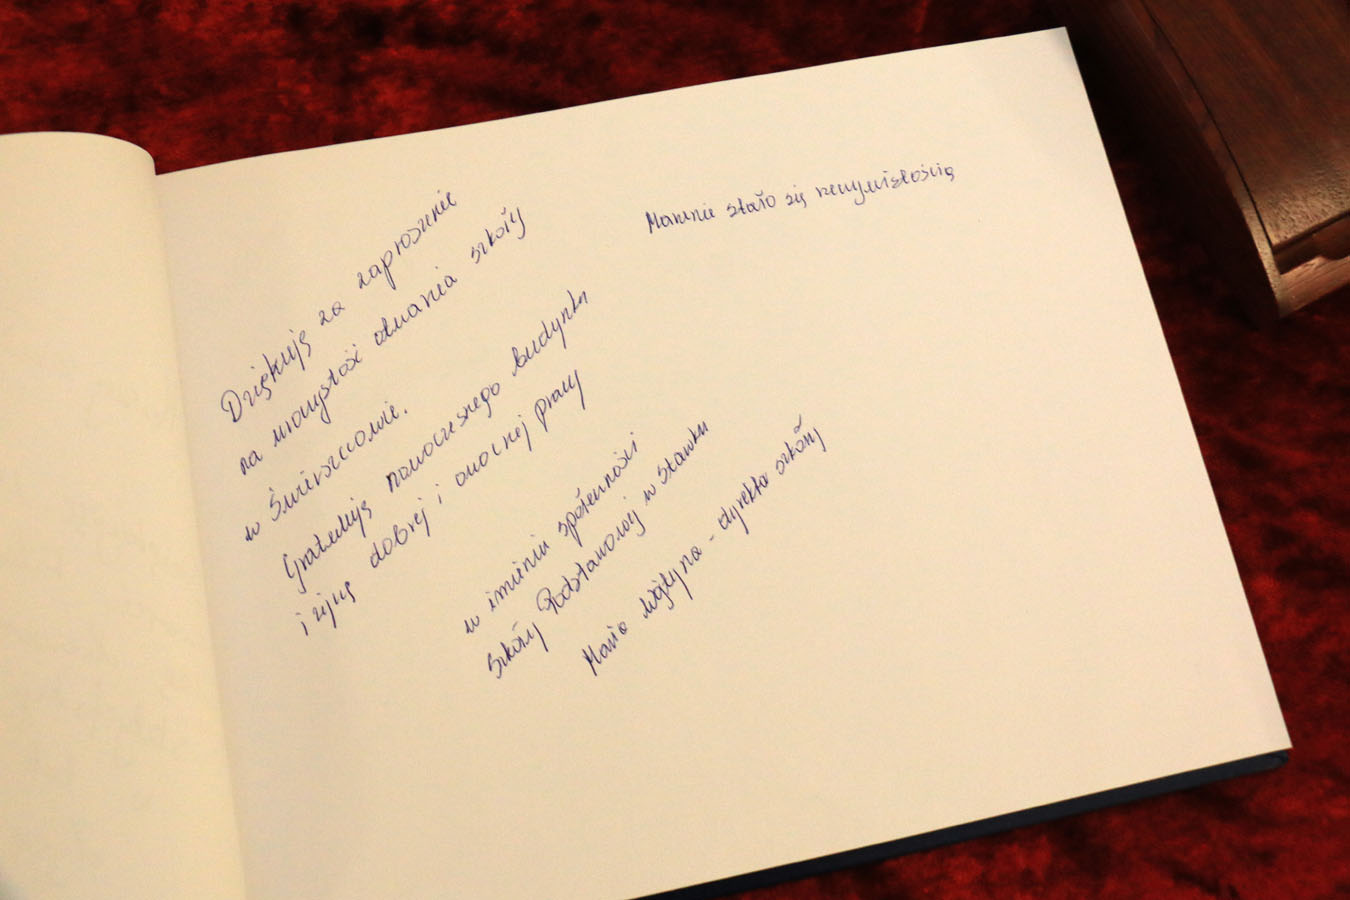 Marzenie stało się rzeczywistością
Dziękuję za zaproszenie
na uroczystość otwarcia szkoły
w Świerszczowie.
Gratuluję nowoczesnego budynku
i życzę dobrej i owocnej pracy
w imieniu społeczności
Szkoły Podstawowej w Stawku
Maria Wojtyna - dyrektor szkoły